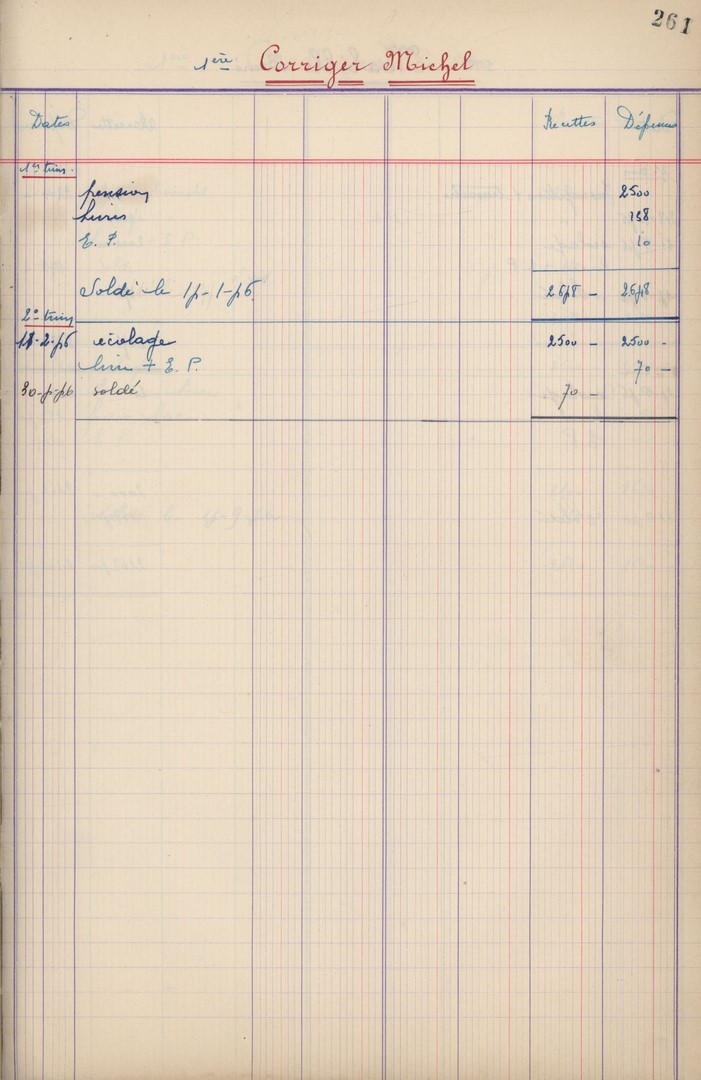 261
1ère Corriger Michel
Dates Recettes Dépenses
1er trim.
pension 2500
livres 148
E. P. 10
Soldé le 15-1-56 2658 - 2658
2e trim
18-2-56 écolage 2500 - 2500 -
livre + E. P. 70 -
30-5-56 soldé 70 -